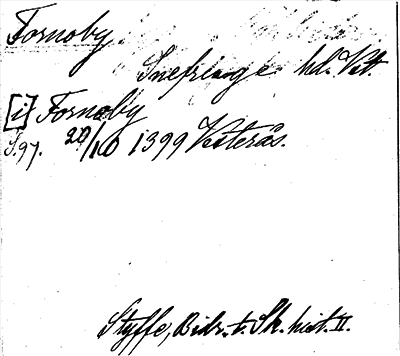 Fornoby
Snefringe hd. Vstl.
[i] Fornoby
S. 97. 20/10 1399 Västerås.
Styffe, Bidr. t. Sk. hist. II.